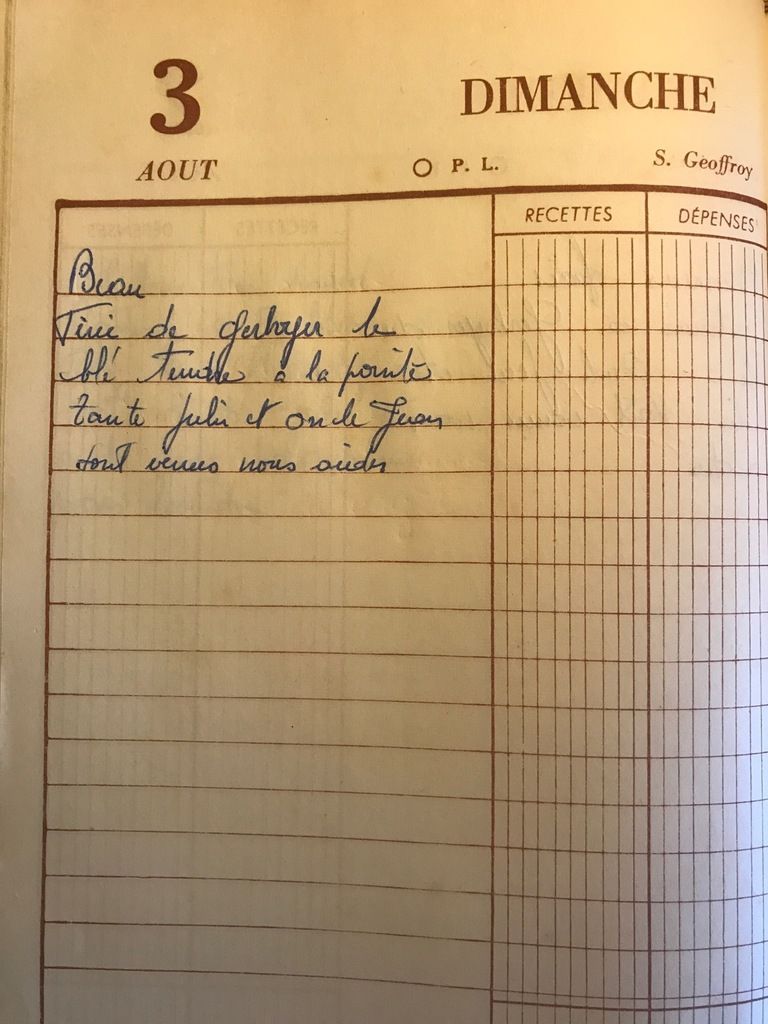 3
DIMANCHE
AOUT
P. L.
S. Geoffroy
RECETTES
DÉPENSES
Beau
Fini de gerboyer le
blé tendre à la pointe
tante Julia et oncle Jean
sont venus nous aider